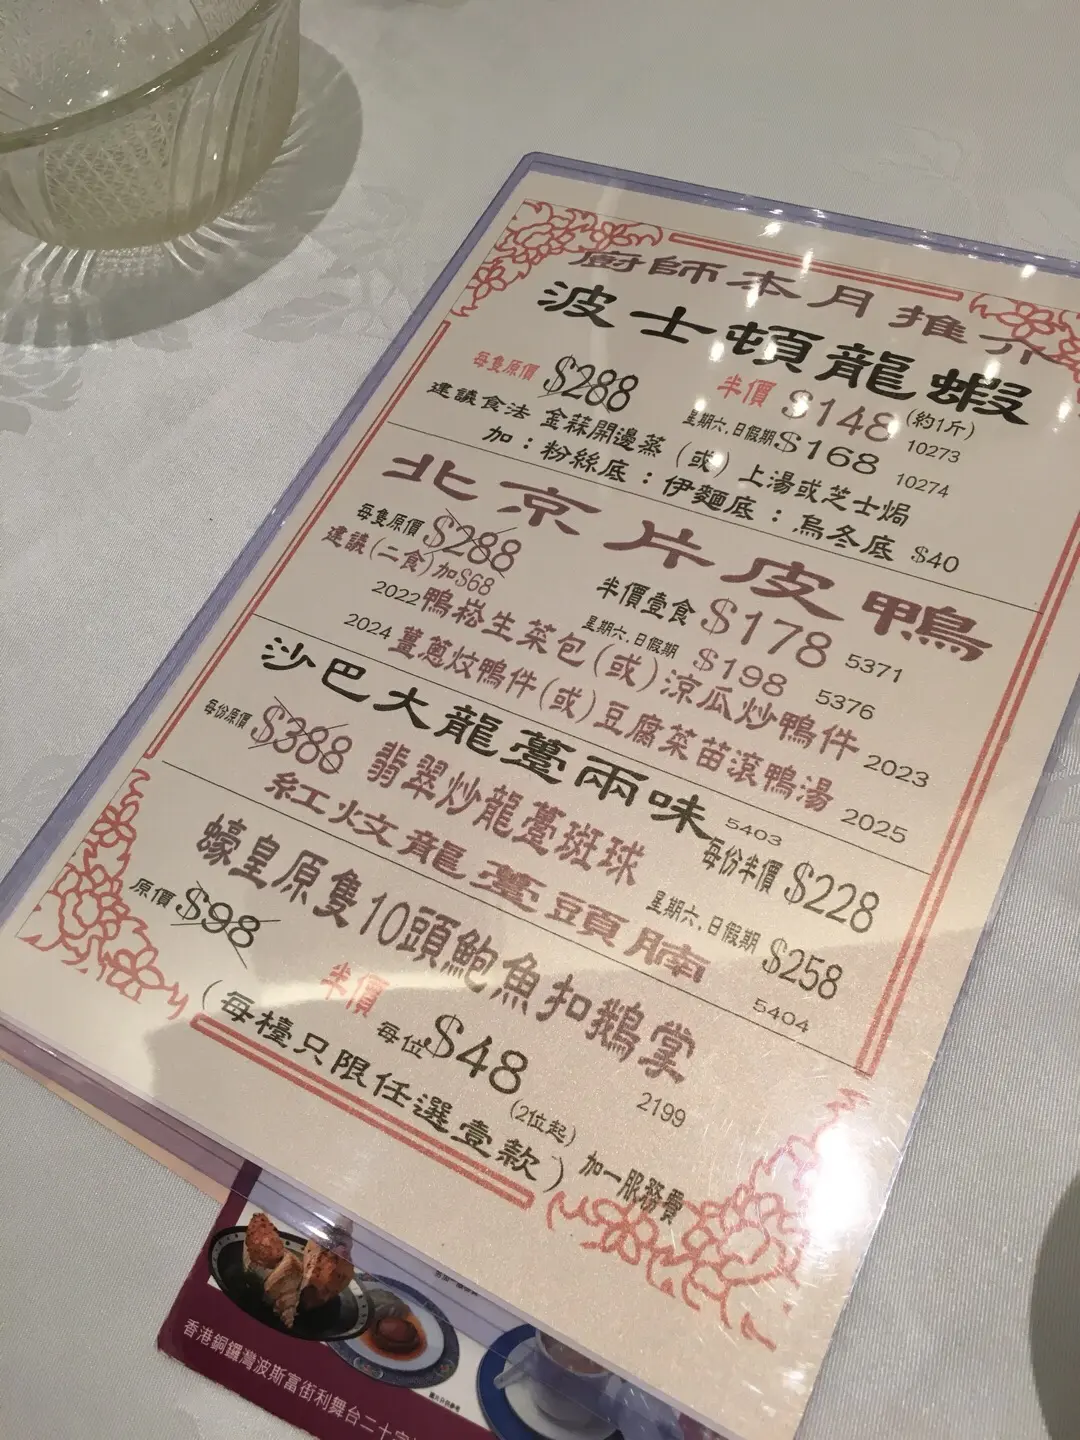 廚師本月推介
波士頓龍蝦
每隻原價 $288 半價 $148 (約1斤) 10273
星期六、日假期 $168 10274
建議食法 金蒜開邊蒸 (或) 上湯或芝士焗
加：粉絲底：伊麵底：烏冬底 $40
北京片皮鴨
每隻原價 $288 半價壹食 $178 5371
星期六、日假期 $198 5376
建議(二食)加$68
2022 鴨崧生菜包(或)涼瓜炒鴨件 2023
2024 薑蔥炆鴨件(或)豆腐菜苗滾鴨湯 2025
沙巴大龍躉兩味 5403
每份原價 $388 每份半價 $228
翡翠炒龍躉斑球
紅炆龍躉頭腩 星期六、日假期 $258
5404
蠔皇原隻10頭鮑魚扣鵝掌
原價 $98 半價 每位 $48 (2位起) 2199
(每檯只限任選壹款) 加一服務費
香港銅鑼灣波斯富街利舞台二十